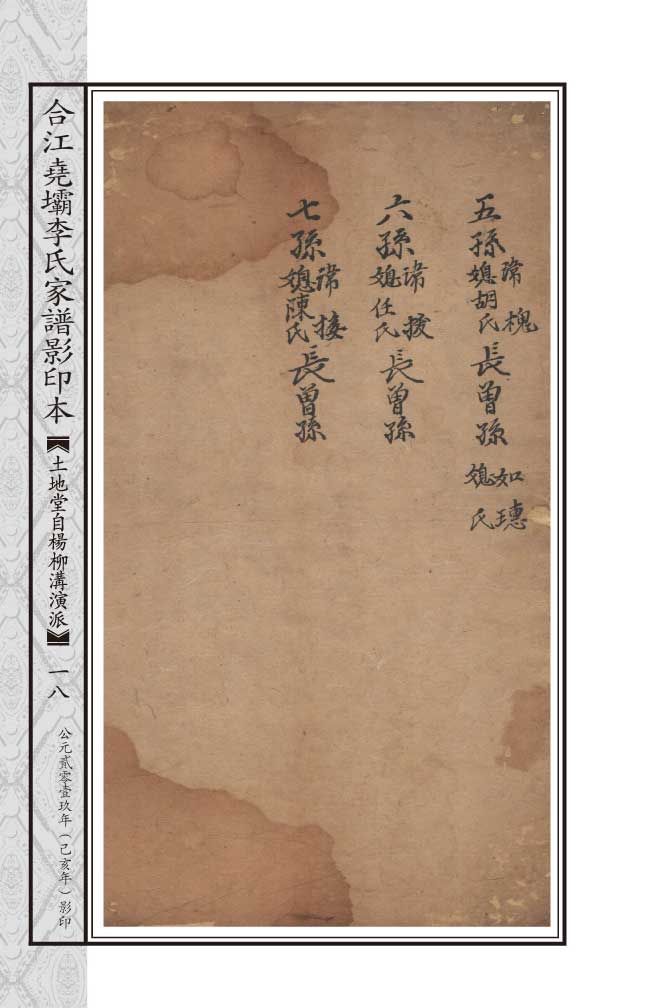 五孫諱槐媳胡氏長曾孫如璁媳氏
六孫諱拔媳任氏長曾孫
七孫諱接媳陳氏長曾孫
合江堯壩李氏家譜影印本【土地堂自楊柳溝演派】一八
公元貳零壹玖年（己亥年）影印